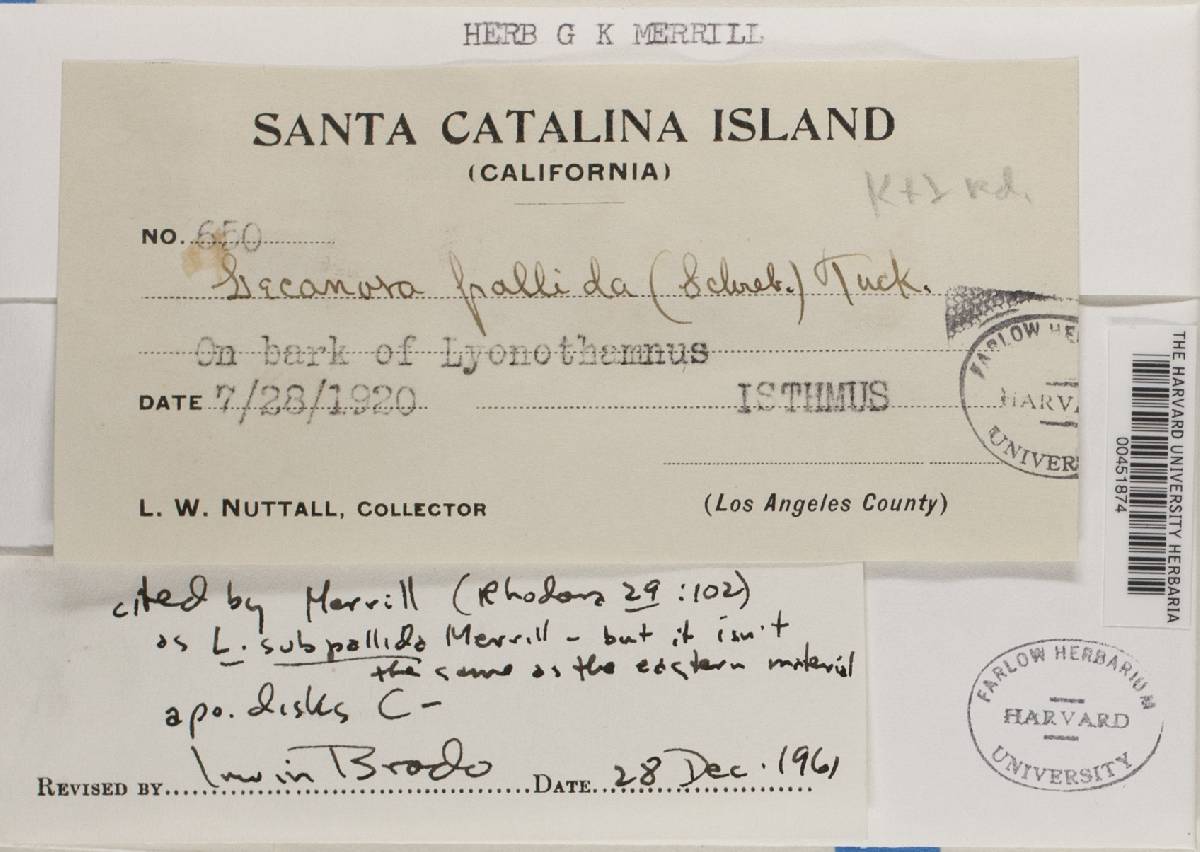 HERB G K MERRILL
SANTA CATALINA ISLAND
(CALIFORNIA)
K+I red.
NO. 650
Lecanora pallida (Schreb.) Tuck.
On bark of Lyonothamnus
DATE 7/28/1920 ISTHMUS
L. W. NUTTALL, COLLECTOR (Los Angeles County)
FARLOW HE
HARVA
UNIVER
THE HARVARD UNIVERSITY HERBARIA
00451874
cited by Merrill (Rhodora 29:102)
as L. subpallida Merrill - but it isn't
the same as the eastern material
apo. disks C-
REVISED BY Irwin Brodo DATE 28 Dec. 1961
FARLOW HERBARIUM
HARVARD
UNIVERSITY